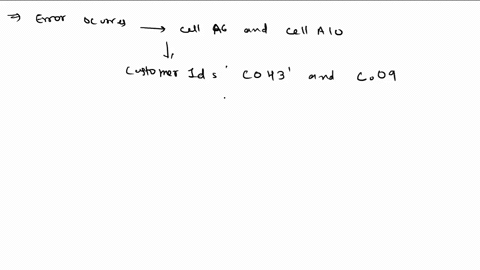 ⇒ Error occurres → cell A6 and cell A10
↓
Customer Ids 'C043' and C.09